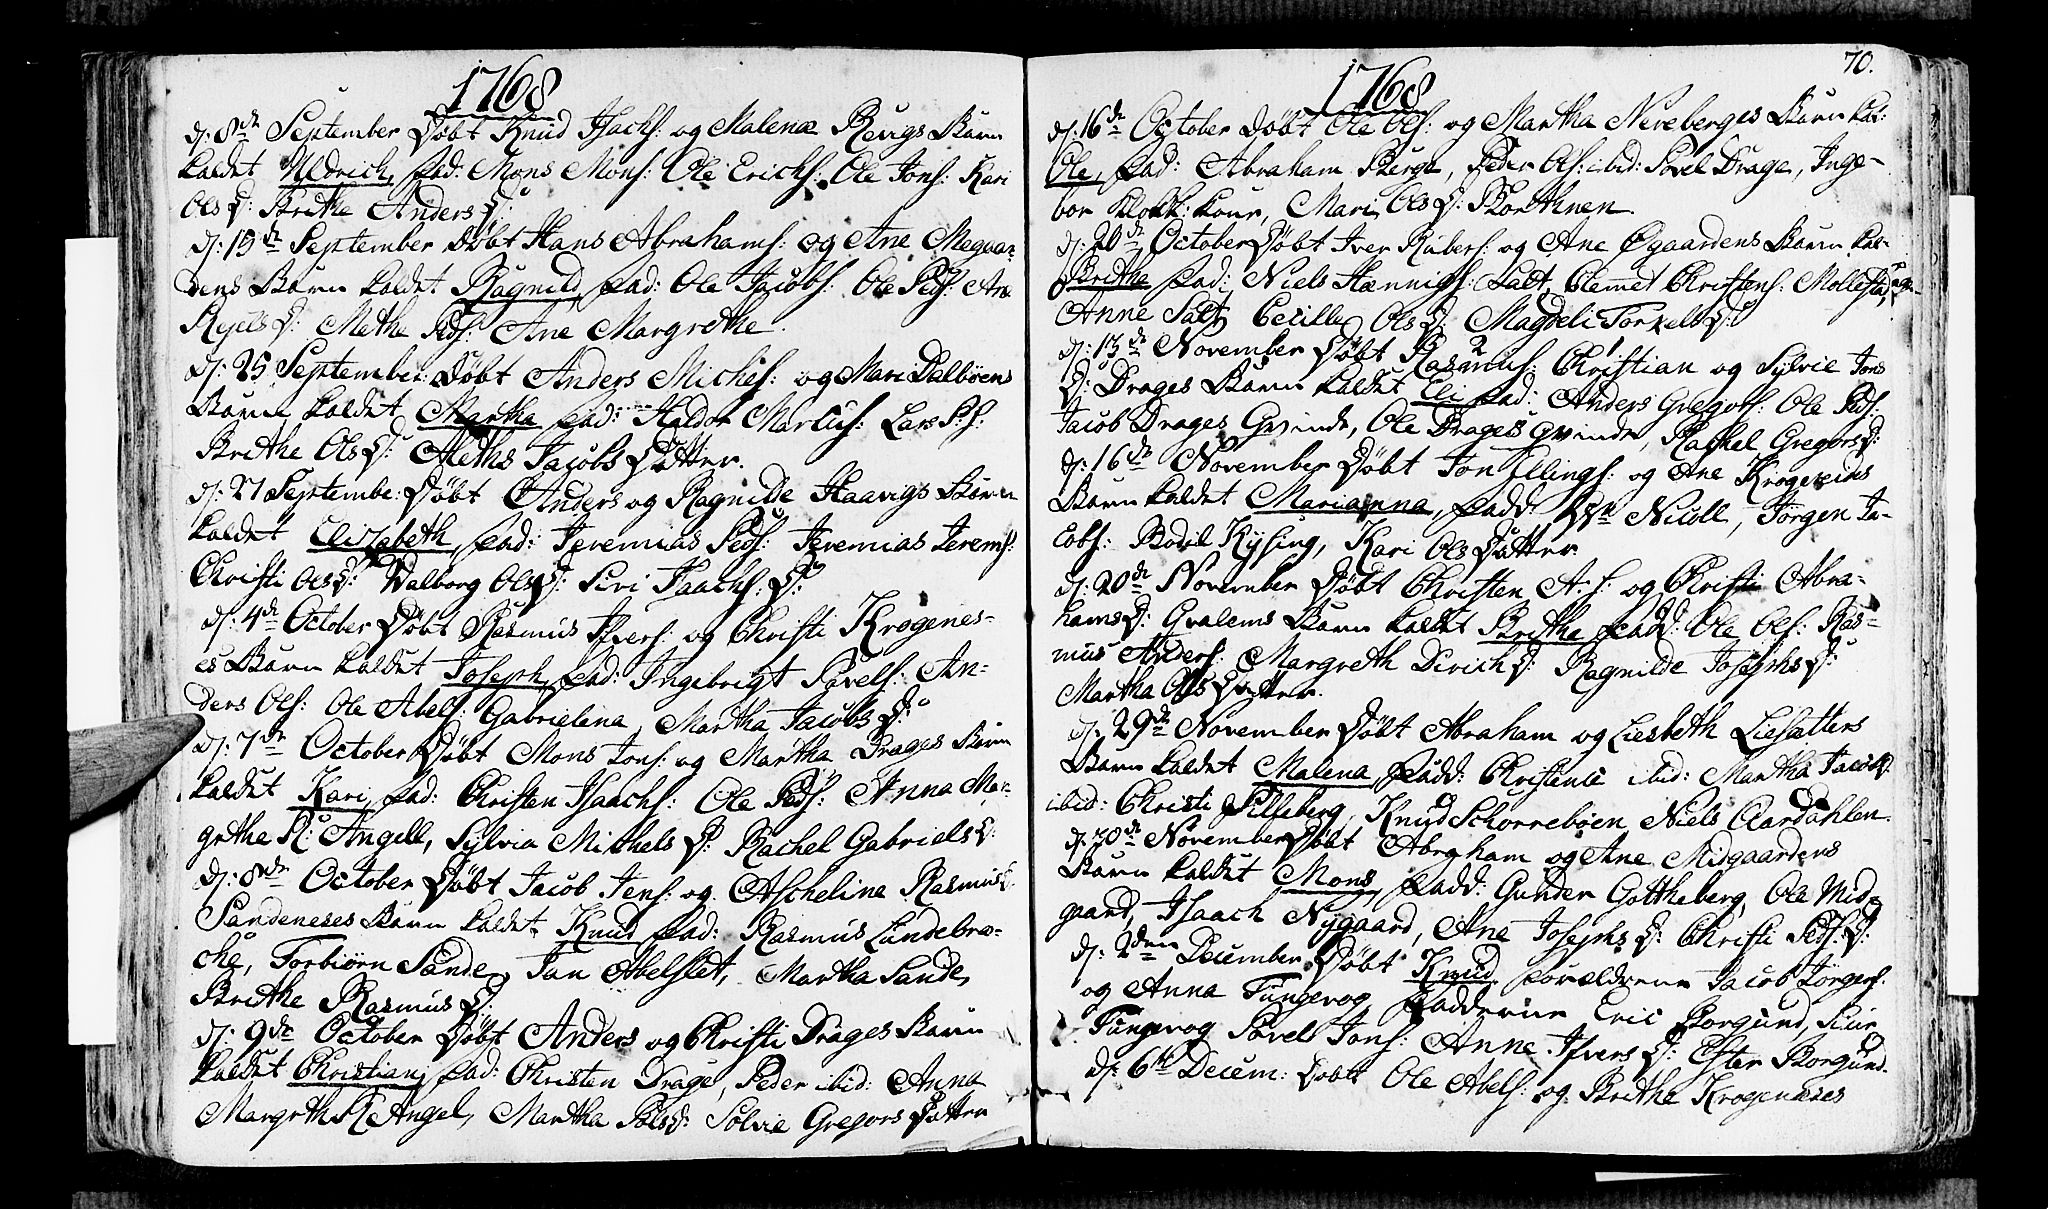 1768
d: 8de September Døbt Knud Isachs: og Malena Revigs Barn
kaldet Uldrich, fad: Mons Mons: Ole Erichs: Ole Jons: Kari
Ols D: Brithe Anders D:
d: 15de September Døbt Hans Abrahams: og Ane Megaar-
dens Barn kaldet Ragnild, fad: Ole Jacobs: Ole Peds: Ane
Kiels D: Methe Peds: Ane Margrethe.
d: 25 September: Døbt Anders Michels: og Mari Dalbøens
Barn kaldet Martha fad: Haldor Marcus: Lars P.s:
Brithe Ols D: Aleths Jacobs Datter.
d: 27 Septembe: Døbt Anders og Ragnilde Haavigs Barn
kaldet Elizabeth, fad: Jeremias Peds: Jeremias Jerems:
Christi Ols D: Walborg Ols D: Siri Isachs: D:
d: 4de October Døbt Rasmus Ifvers: og Christi Krogenes-
es Barn kaldet Joseph, fad: Ingebrigt Povels: An-
ders Ols: Ole Abels: Gabrielina, Martha Jacobs D:
d: 7de October Døbt Mons Jons: og Martha Drages Barn
kaldet Kari, fad: Christen Isachs: Ole Peds: Anna Mar-
grethe R: Angell, Sylvia Michels D: Rachel Gabriels D:
d: 8de October Døbt Jacob Jens: og Aschelina Rasmus D:
Sandeneses Barn kaldet Knud fad: Rasmus Lundebra-
che, Torbiørn Sande, Jan Abelsæt, Martha Sande,
Brithe Rasmus D:
d: 9de October Døbt Anders og Christi Drages Barn
kaldet Christian, fad: Christen Drage, Peder ibid: Anna
Margrth R Angel, Martha Pols D: Solvie Gregors Datter
70.
1768
d: 16de October Døbt Ole Ols: og Martha Nereberges Barn kal:
Ole, fad: Abraham Berge, Peder Ols: ibid: Povel Drage, Inge-
bor Klokk: Kone, Mari Ols D: Borthnen.
d: 20de October Døbt Iver Rubers: og Ane Øgaardens Barn kal-
Brithe fad: Niels Hennigs: Salt, Clemet Christens: Mollestad,
Anne Salt, Cecille Ols D: Magdeli Torkels D:
d: 13de November Døbt Rasmus: Christian og Sylvie Jons
D: Drages Barn kaldet Eli fad: Anders Gregors: Ole Peds:
Jacob Drages Qvinde, Ole Drages Qvinde, Rachel Gregors D:
d: 16de November Døbt Jon Ellings: og Ane Krogeneses
Barn kaldet Marianna, fadd: Hr Nicoll, Jørgen Ja-
cobs: Bodil Kysing, Kari Ols Datter
d: 20de November Døbt Christen A: s: og Christi Abra-
hams D: Qvalems Barn kaldet Brithe fadd: Ole Ols: Ras-
mus Anders: Margreth Dirich D: Ragnilde Josephs D:
Martha Ols Datter.
d: 29de November Døbt Abraham og Liesbeth Liesætters
Barn kaldet Malena, fadd: Christense ibid: Martha Jacobs D:
ibid: Christi Silleberg, Knud Schorrebøen Niels Aardahlen.
d: 30de November Døbt Abraham og Ane Midgaardens
Barn kaldet Mons, fadd: Gunder Gottheberg, Ole Mid-
gaard, Isaach Nygaard, Ane Josephs D: Christi Peds: D:
d: 2den December Døbt Knud forældrene Jacob Jørgens:
og Anna Tungevog, Fadderne Eric Borgund, Siur
Tungevog Povel Jons: Anne Ifvers D: Ester Borgund.
d: 6te Decem: Døbt Ole Abels: og Brithe Krogeneses